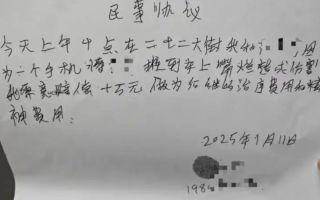 民事协议
今天上午十点在二十二大街我和 ,因
为一个手机将 推到车上嘴烂造成伤害
我愿意赔偿十万元做为行他的治疗费用和精
神费用:
2025年1月11日
198